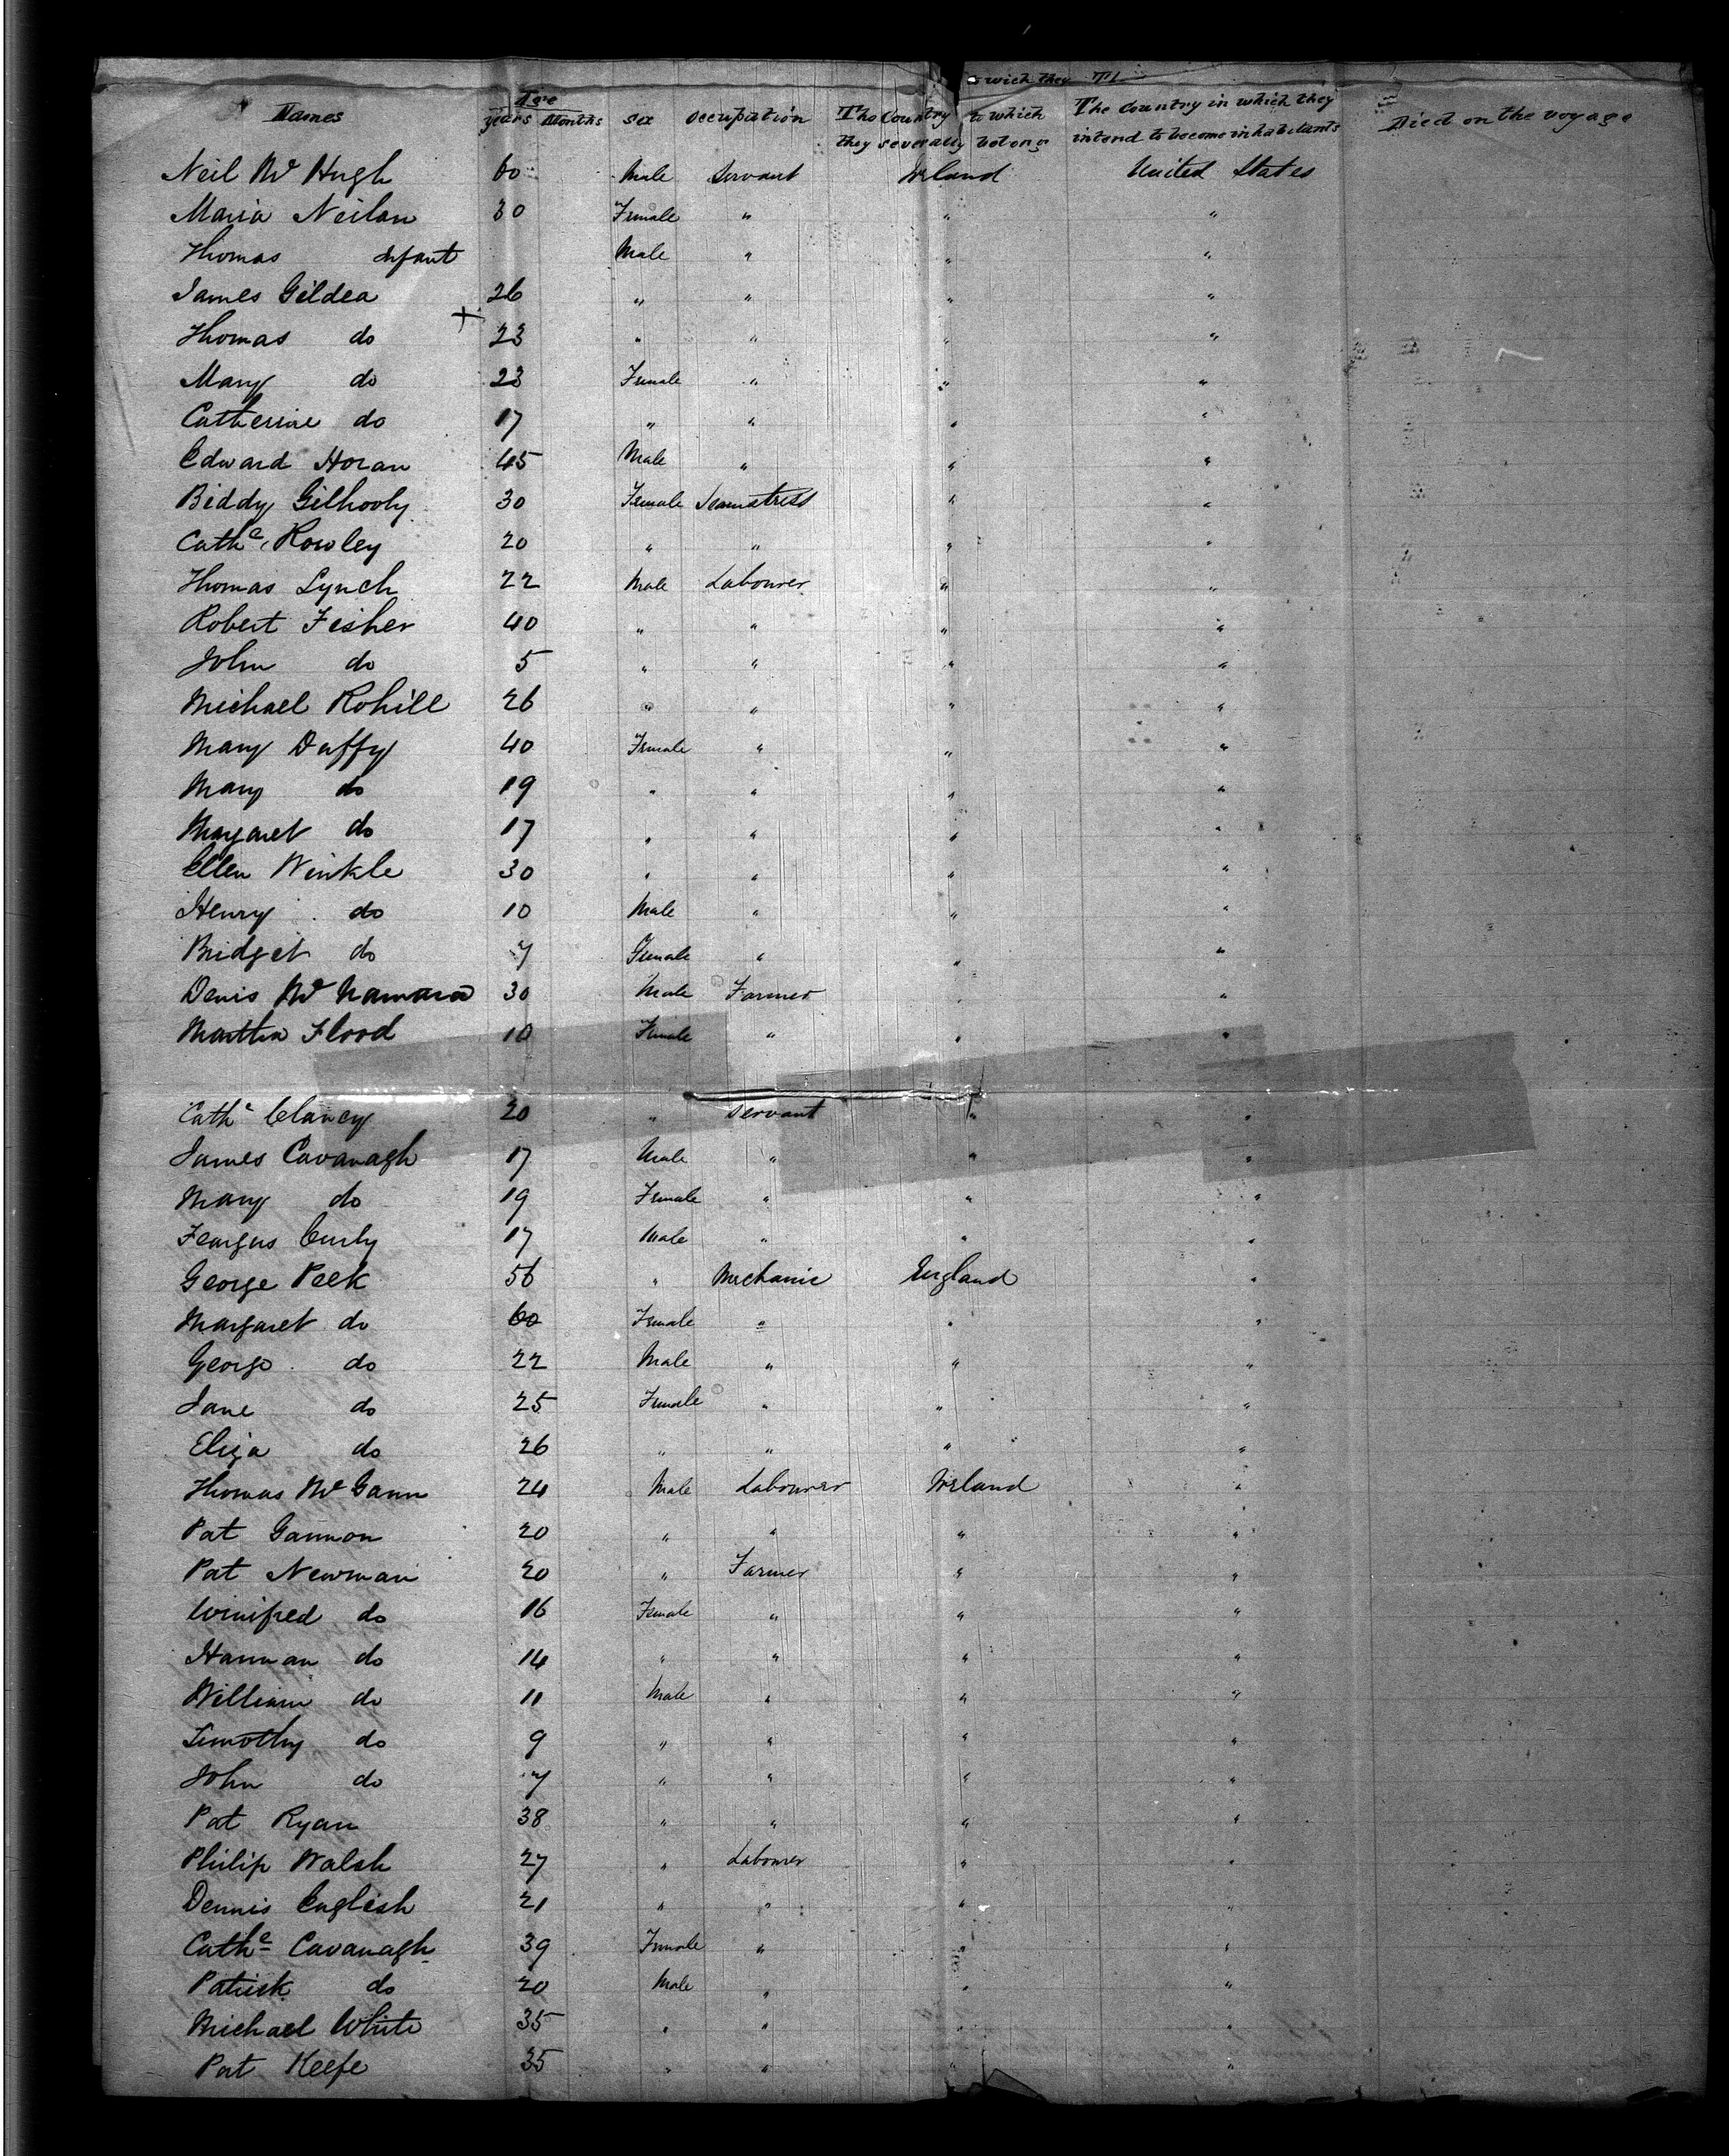 wich they Th
Names Age years Months sex occupation The Country to which they severally belong The Country in which they intend to become inhabitants Died on the voyage
Neil Mc Hugh 60 Male Servant Ireland United States
Maria Neilan 30 Female " " "
Thomas Infant Male " " "
James Gildea 26 " " " "
+
Thomas do 23 " " " "
Mary do 23 Female " " "
Catherine do 17 " " " "
Edward Horan 45 Male " " "
Biddy Gilhooly 30 Female Seamstress " "
Cathe Rowley 20 " " " "
Thomas Lynch 22 Male Labourer " "
Robert Fisher 40 " " " "
John do 5 " " " "
Michael Rohill 26 " " " "
Mary Duffy 40 Female " " "
Mary do 19 " " " "
Margaret do 17 " " " "
Ellen Winkle 30 " " " "
Henry do 10 Male " " "
Bridget do 7 Female " " "
Denis Mc Namara 30 Male Farmer " "
Martha Flood 10 Female " " "
Cathe Clancy 20 " Servant " "
James Cavanagh 17 Male " " "
Mary do 19 Female " " "
Feargus Curly 17 Male " " "
George Peek 56 " Mechanic England "
Margaret do 60 Female " " "
George do 22 Male " " "
Jane do 25 Female " " "
Eliza do 26 " " " "
Thomas Mc Gann 24 Male Labourer Ireland "
Pat Gannon 20 " " " "
Pat Newman 20 " Farmer " "
Winifred do 16 Female " " "
Hannan do 14 " " " "
William do 11 Male " " "
Timothy do 9 " " " "
John do 7 " " " "
Pat Ryan 38 " " " "
Philip Walsh 27 " Labourer " "
Dennis English 21 " " " "
Cathe Cavanagh 39 Female " " "
Patrick do 20 Male " " "
Michael White 35 " " " "
Pat Keefe 35 " " " "